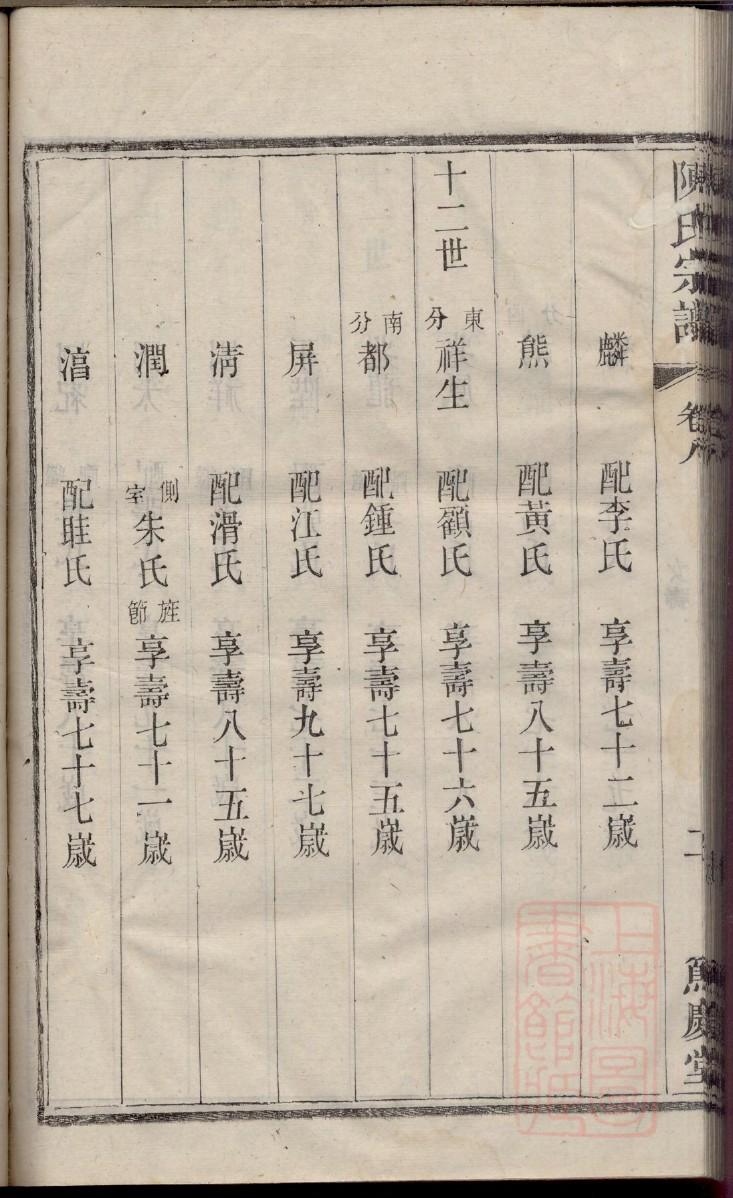 陳氏宗譜 卷八 二 篤慶堂
麟 配李氏 享壽七十二歲
熊 配黃氏 享壽八十五歲
十二世 東分 祥生 配顧氏 享壽七十六歲
南分 都 配鍾氏 享壽七十五歲
屏 配江氏 享壽九十七歲
淸 配滑氏 享壽八十五歲
潤 側室 朱氏 旌節 享壽七十一歲
湻 配眭氏 享壽七十七歲
上海圖書館藏